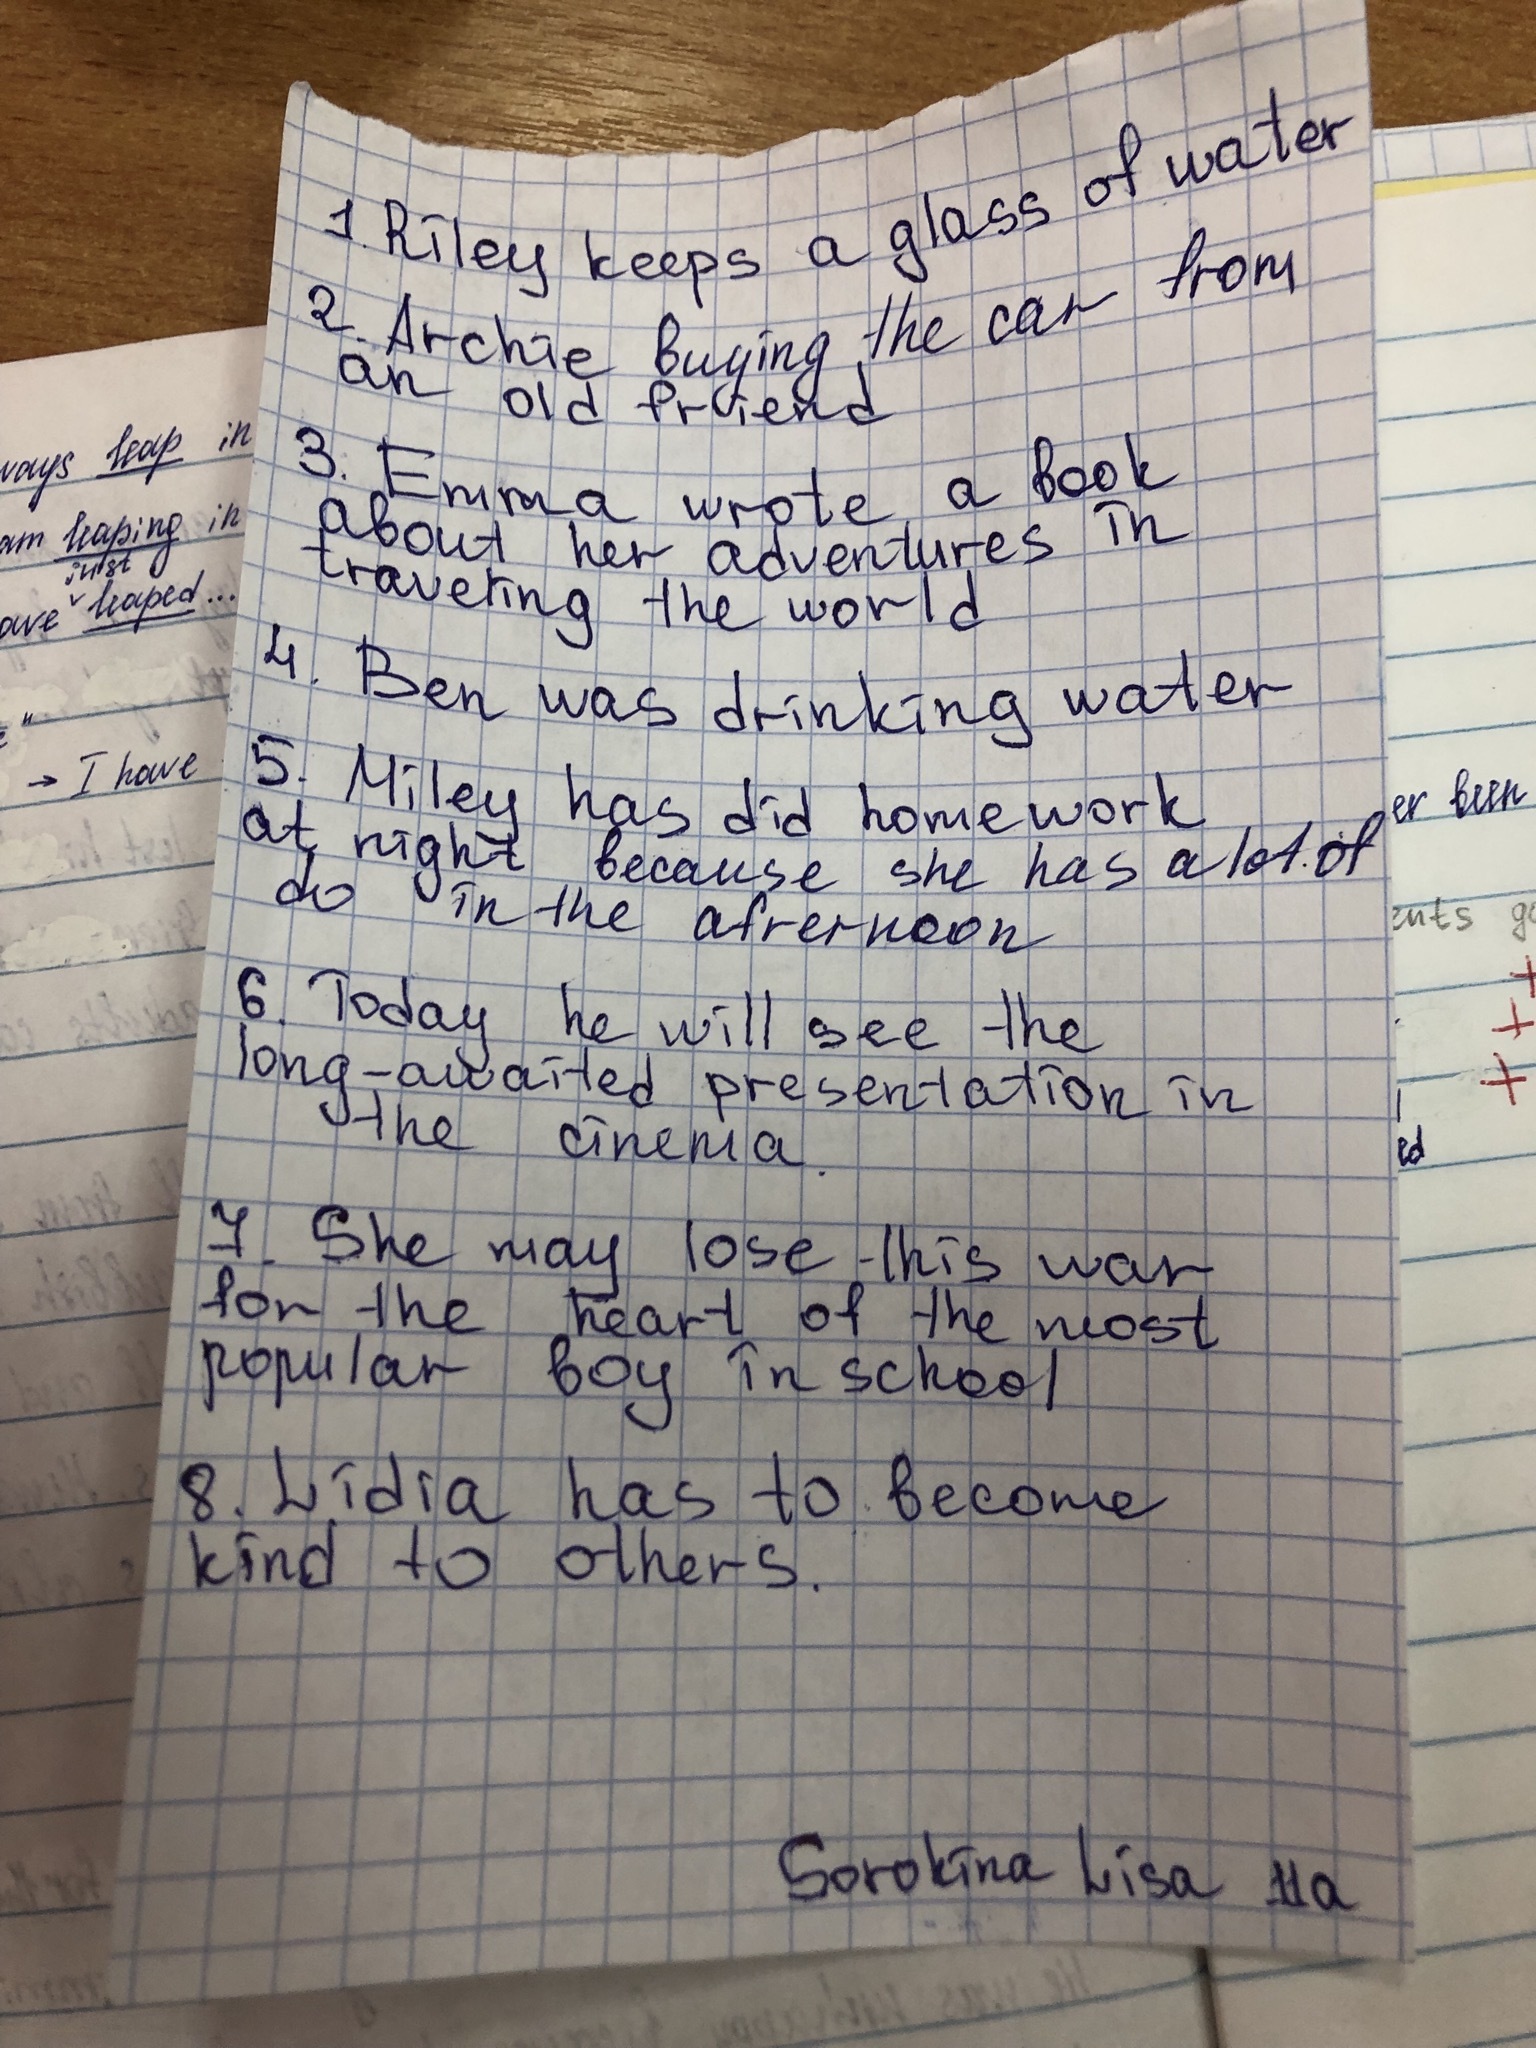 1. Riley keeps a glass of water
2. Archie buying the car from
an old friend
3. Emma wrote a book
about her adventures in
traveling the world
4. Ben was drinking water
5. Miley has did homework
at night because she has a lot of
do in the afrernoon
6. Today he will see the
long-awaited presentation in
the cinema.
7. She may lose this war
for the heart of the most
popular boy in school
8. Lidia has to become
kind to others.
Sorokina Lisa 11a
ways leap in
am leaping in
just
ave leaped...
→ I have
er been
ents go
+
+
+
ed